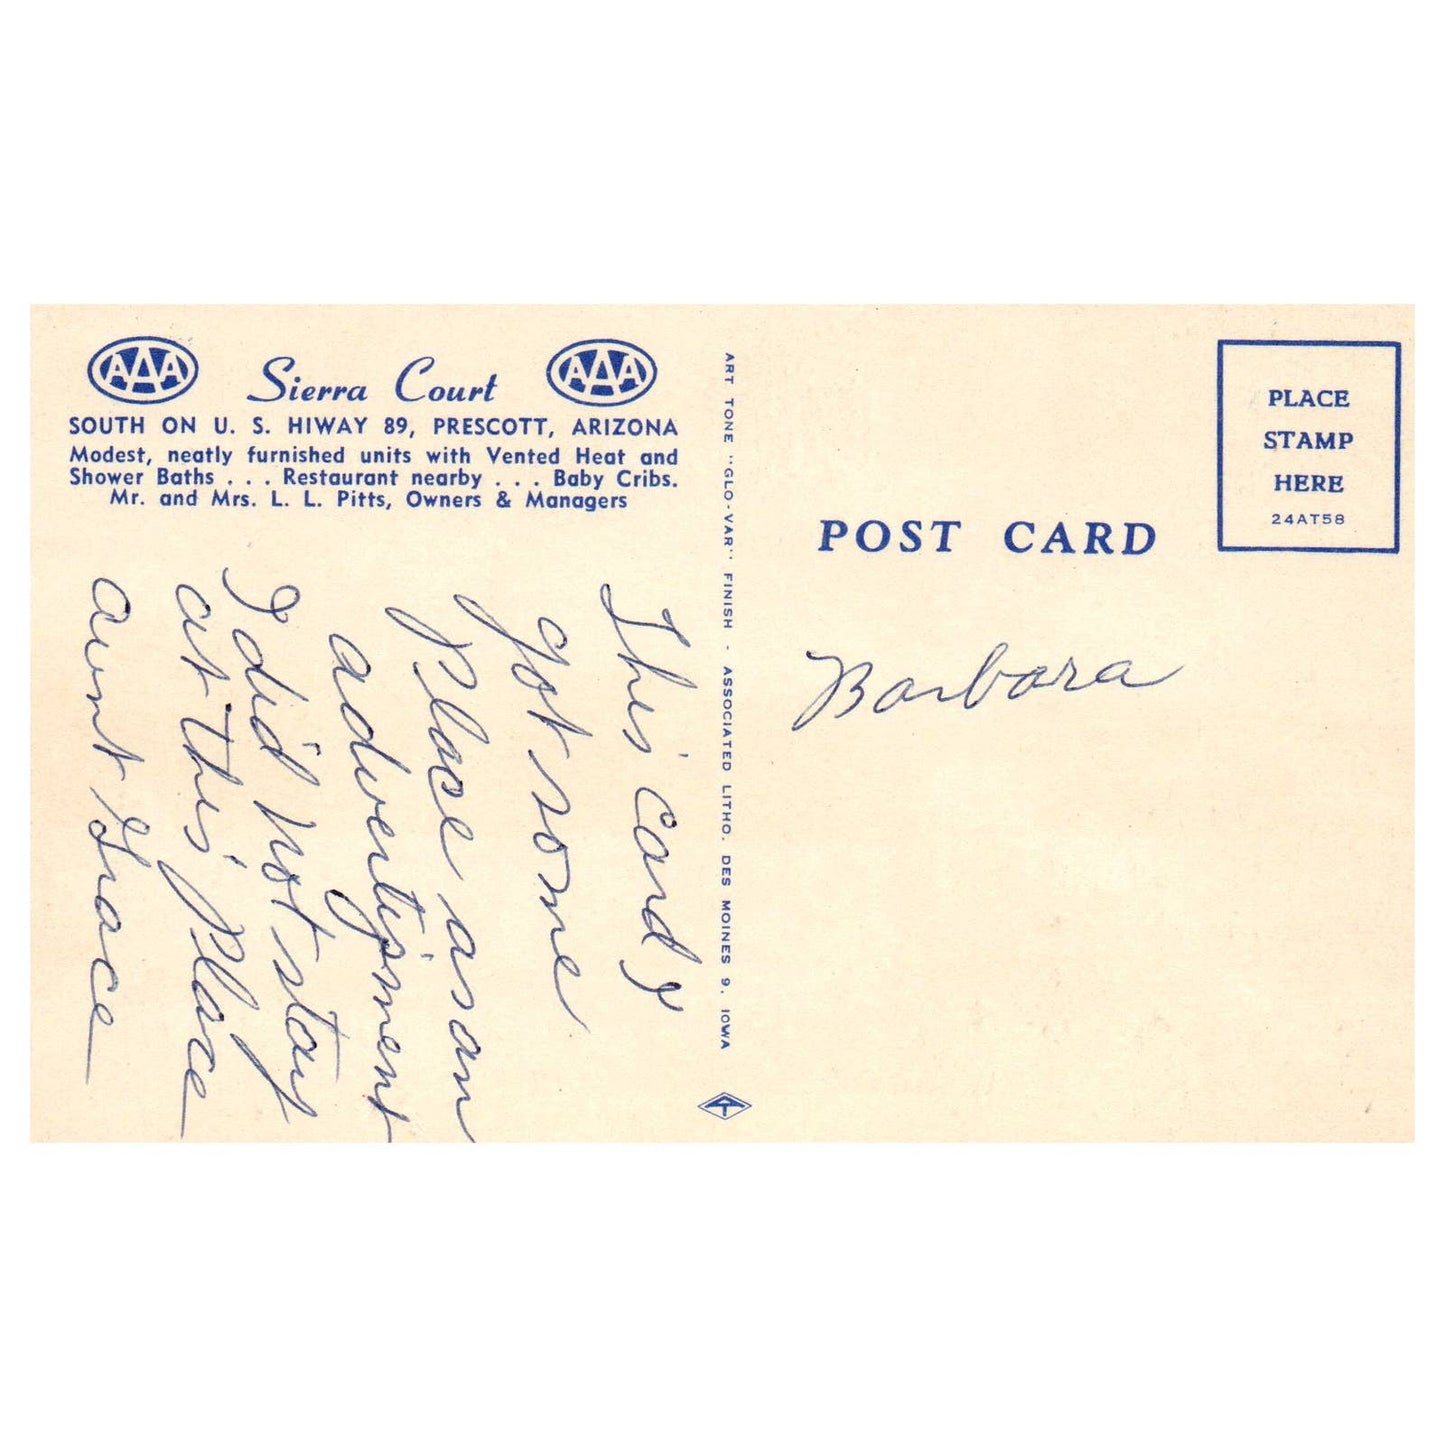 AAA Sierra Court AAA
SOUTH ON U. S. HIWAY 89, PRESCOTT, ARIZONA
Modest, neatly furnished units with Vented Heat and
Shower Baths . . . Restaurant nearby . . . Baby Cribs.
Mr. and Mrs. L. L. Pitts, Owners & Managers
This card I
got some
Place as an
advertisment
I did not stay
at this Place
aunt Grace
ART TONE "GLO-VAR" FINISH - ASSOCIATED LITHO. DES MOINES 9, IOWA
POST CARD
PLACE
STAMP
HERE
24AT58
Barbara